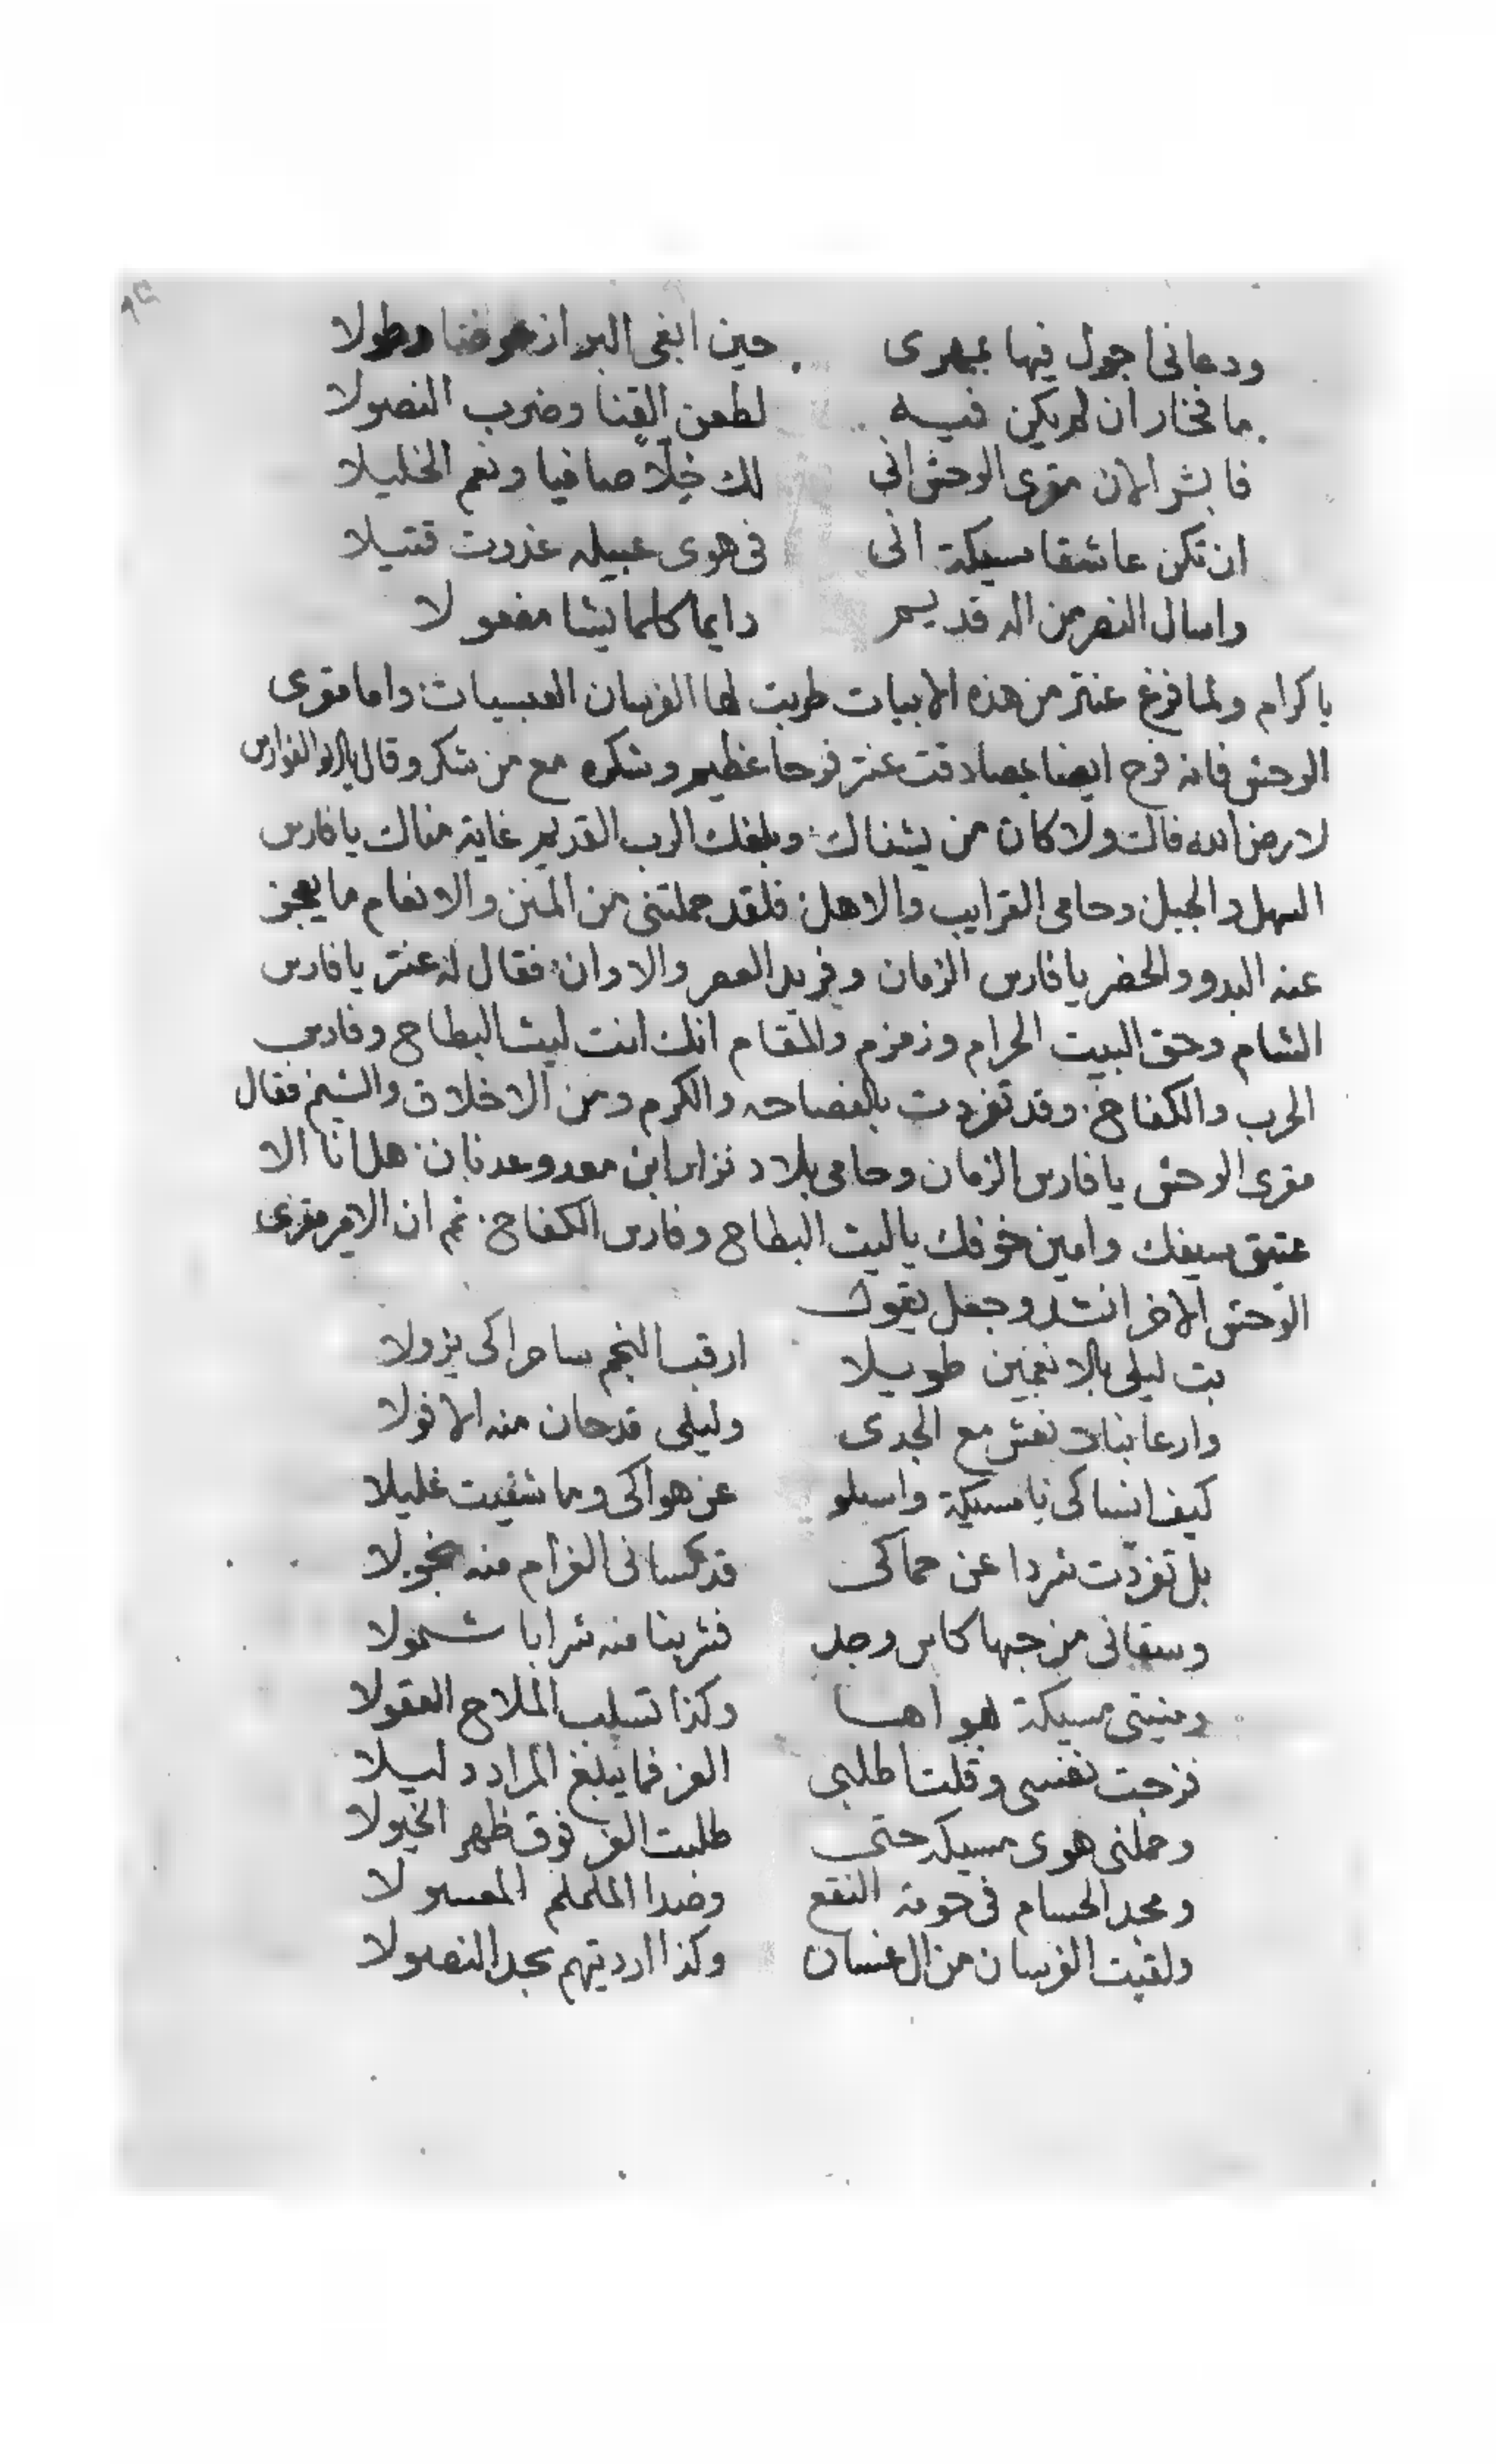 ودعانى اجول فيها بمهرى حين ابغى البراز عرضا وطولا
ما فخار ان لم يكن فيه لطعن القنا وضرب النصولا
فابشر الان مقرى الوحش انى لك خِلّا صافيا ونعم الخليلا
ان تكن عاشقا مسيكة انى فى هوى عبيله غدوت قتيلا
واسال النصر من اله قديم دايما كلما يشا مفعولا
يا كرام ولما فرغ عنتر من هذه الابيات طربت لها الفرسان العبسيات واما مقرى
الوحش فانه فرح ايضا بصادقت عنتر فرحا عظيم وشكره مع من شكر وقال يا ابو الفوارس
لا رض الله فاك ولا كان من يشناك وبلغك الرب القديم غاية مناك يا فارس
السهل والجبل وحامى القرايب والاهل فلقد حملتنى من المنن والانعام ما يعجز
عنه البدو والحضر يا فارس الزمان وفريد العصر والاوان فقال له عنتر يا فارس
الشام وحق البيت الحرام وزمزم والمقام انك انت ليث البطاح وفارس
الحرب والكفاح وقد تفردت بالفصاحه والكرم وحسن الاخلاق والشيم فقال
مقرى الوحش يا فارس الزمان وحامى بلاد نزار ابن معد وعدنان هل انا الا
عتيق سيفك وامين خوفك يا ليث البطاح وفارس الكفاح ثم ان الامير مقرى
الوحش الاخر انشد وجعل يقول
بت ليلى بالانعمين طويلا ارقب النجم ساهرا كى يزولا
وارعا بنات نعش مع الجدى وليلى قد حان منه الافولا
كيف انساكى يا مسيكة واسلو عن هواكى وما شفيت غليلا
بل تفردت شردا عن حماكى قد كسانى الغرام منه نحولا
وسقانى من حبها كاس وجد فشربنا منه شرابا شمولا
ومنيتى مسيكة هواها وكذا تسلب الملاح العقولا
فزجت نفسى وقلت اطلبى العز فما يبلغ المراد دليلا
وحملنى هوى مسيكه حتى طلبت العز فوق ظهر الخيولا
وبحد الحسام فى حومة النقع وصدا الململم المعسولا
ولقيت الفرسان من ال غسان وكذا ارديتهم بحد النصولا